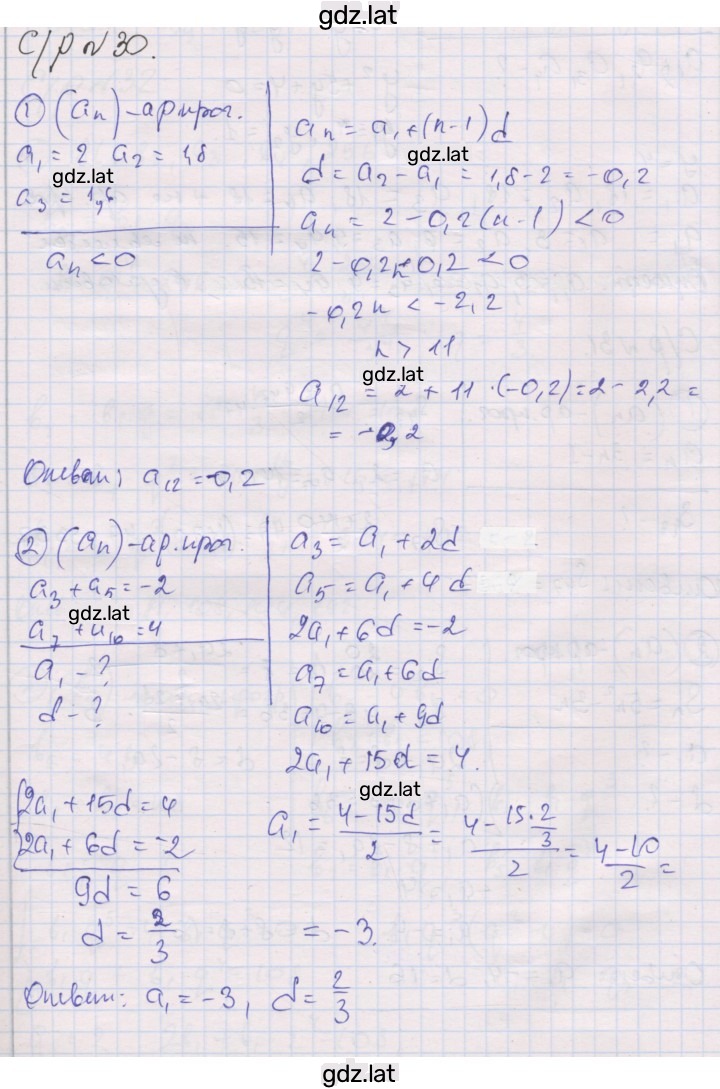 gdz.lat
С/р №30.
① (aₙ) – ар. прог.
a₁ = 2 a₂ = 1,8
gdz.lat
a₃ = 1,6
aₙ < 0
aₙ = a₁ + (n-1)d
gdz.lat
d = a₂ – a₁ = 1,8 – 2 = –0,2
aₙ = 2 – 0,2(n-1) < 0
2 – 0,2n + 0,2 < 0
–0,2n < –2,2
n > 11
gdz.lat
a₁₂ = 2 + 11 · (–0,2) = 2 – 2,2 =
= –0,2
Ответ: a₁₂ = –0,2
② (aₙ) – ар. прог.
a₃ + a₅ = –2
gdz.lat
a₇ + a₁₀ = 4
a₁ – ?
d – ?
a₃ = a₁ + 2d
a₅ = a₁ + 4d
2a₁ + 6d = –2
a₇ = a₁ + 6d
a₁₀ = a₁ + 9d
2a₁ + 15d = 4.
gdz.lat
{2a₁ + 15d = 4
{2a₁ + 6d = –2
9d = 6
d = 2/3
a₁ = (4 – 15d)/2 = (4 – 15·2/3)/2 = (4 – 10)/2 =
= –3.
Ответ: a₁ = –3, d = 2/3
gdz.lat